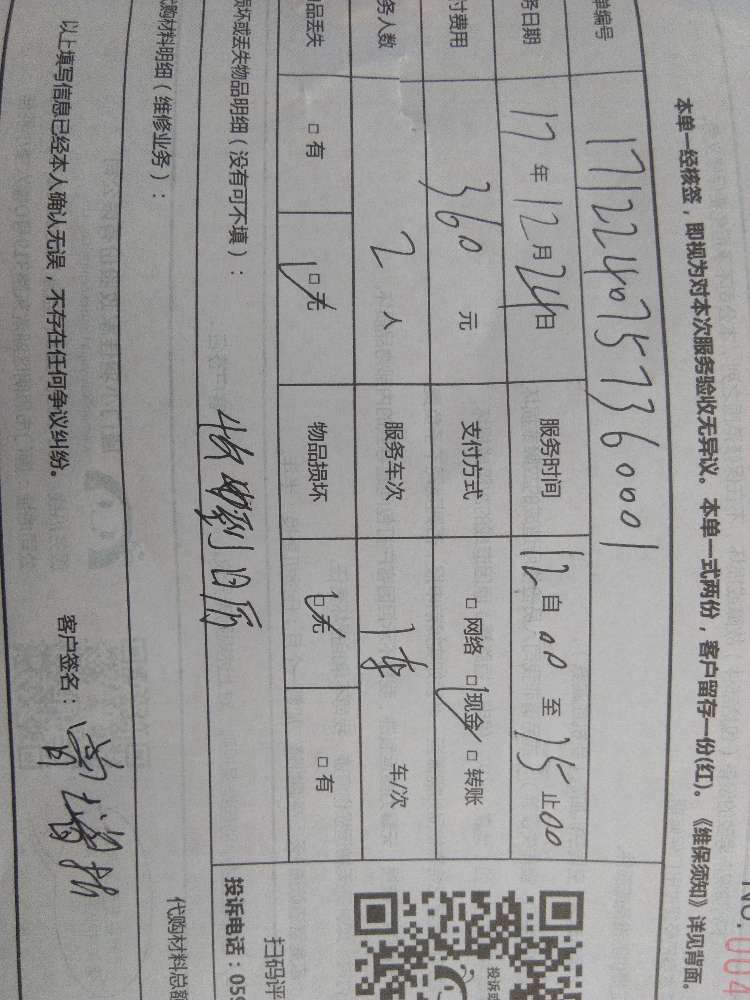 No.004
本单一经核签，即视为对本次服务验收无异议。本单一式两份，客户留存一份(红)。《维保须知》详见背面。
单编号 1712240757360001
务日期 17年12月24日 服务时间 12自00至15止00
付费用 360元 支付方式 □网络 □现金 □转账
务人数 2人 服务车次 1车 车/次
物品丢失 □有 □无 物品损坏 □无 □有
损坏或丢失物品明细（没有可不填）：
收到日历
代购材料明细（维修业务）：
代购材料总额
以上填写信息已经本人确认无误，不存在任何争议纠纷。
客户签名：
扫码评
投诉电话：059
投诉